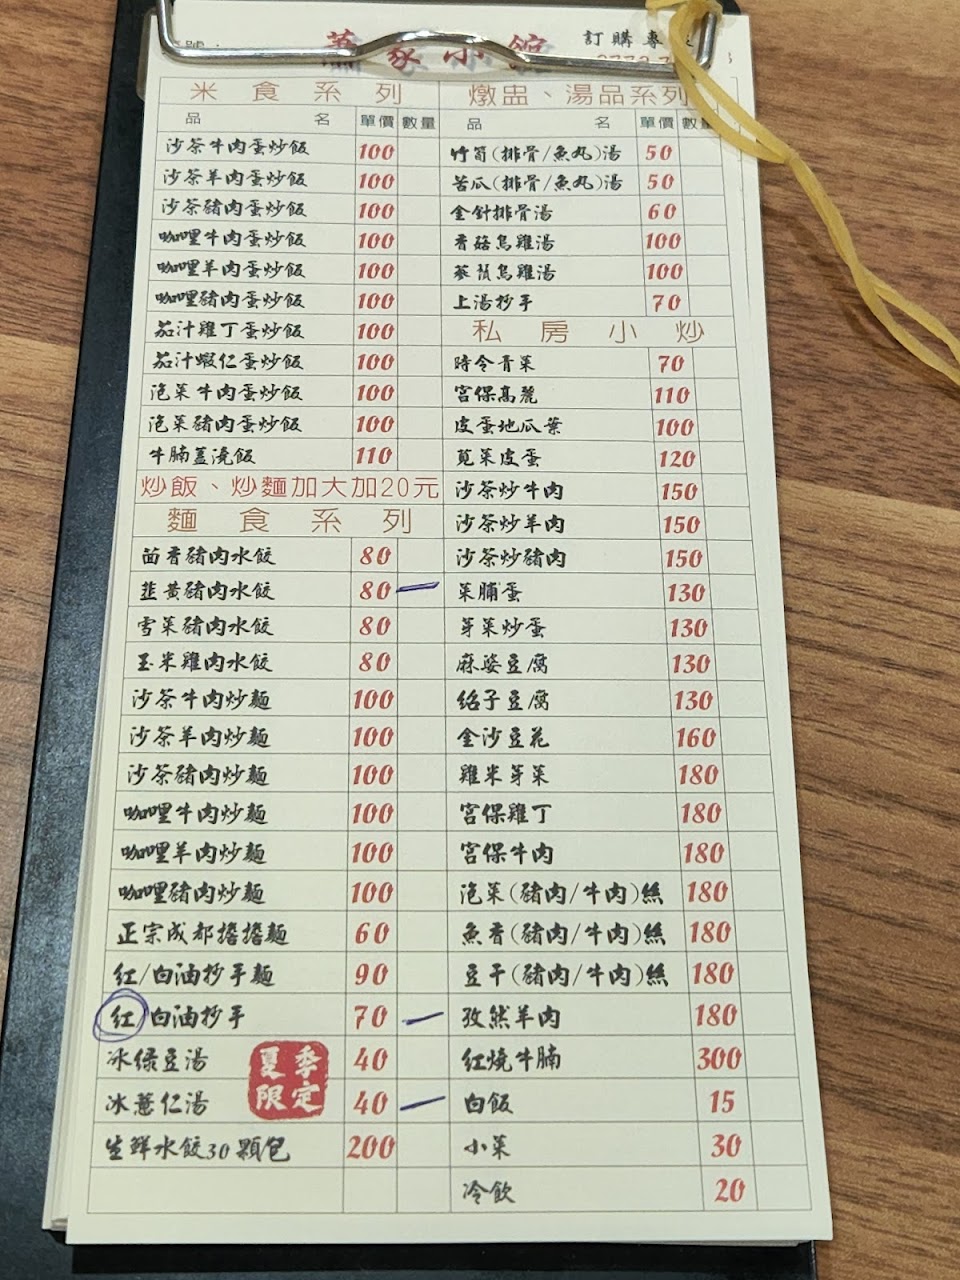 號：
蕭家小館
訂購專線
米食系列
品名 單價 數量
沙茶牛肉蛋炒飯 100
沙茶羊肉蛋炒飯 100
沙茶豬肉蛋炒飯 100
咖哩牛肉蛋炒飯 100
咖哩羊肉蛋炒飯 100
咖哩豬肉蛋炒飯 100
茄汁雞丁蛋炒飯 100
茄汁蝦仁蛋炒飯 100
泡菜牛肉蛋炒飯 100
泡菜豬肉蛋炒飯 100
牛腩蓋澆飯 110
炒飯、炒麵加大加20元
麵食系列
茴香豬肉水餃 80
韮黃豬肉水餃 80 一
雪菜豬肉水餃 80
玉米雞肉水餃 80
沙茶牛肉炒麵 100
沙茶羊肉炒麵 100
沙茶豬肉炒麵 100
咖哩牛肉炒麵 100
咖哩羊肉炒麵 100
咖哩豬肉炒麵 100
正宗成都擔擔麵 60
紅/白油抄手麵 90
紅/白油抄手 70 一
冰綠豆湯 40
冰薏仁湯 40 一
夏季限定
生鮮水餃30顆包 200
燉盅、湯品系列
品名 單價 數量
竹筍(排骨/魚丸)湯 50
苦瓜(排骨/魚丸)湯 50
金針排骨湯 60
香菇烏雞湯 100
蔘鬚烏雞湯 100
上湯抄手 70
私房小炒
時令青菜 70
宮保高麗 110
皮蛋地瓜葉 100
莧菜皮蛋 120
沙茶炒牛肉 150
沙茶炒羊肉 150
沙茶炒豬肉 150
菜脯蛋 130
芽菜炒蛋 130
麻婆豆腐 130
紹子豆腐 130
金沙豆花 160
雞米芽菜 180
宮保雞丁 180
宮保牛肉 180
泡菜(豬肉/牛肉)絲 180
魚香(豬肉/牛肉)絲 180
豆干(豬肉/牛肉)絲 180
孜然羊肉 180
紅燒牛腩 300
白飯 15
小菜 30
冷飲 20